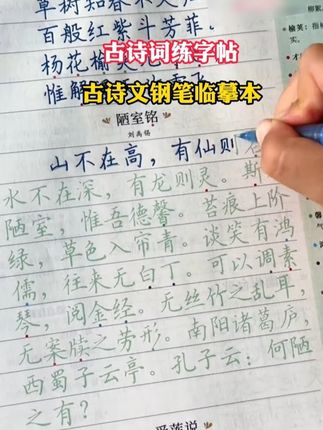 草树知春不久归
百般红紫斗芳菲。
杨花榆
惟解
古诗词练字帖
古诗文钢笔临摹本
陋室铭
刘禹锡
山不在高，有仙则名
水不在深，有龙则灵。斯
陋室，惟吾德馨。苔痕上阶
绿，草色入帘青。谈笑有鸿
儒，往来无白丁。可以调素
琴，阅金经。无丝竹之乱耳，
无案牍之劳形。南阳诸葛庐，
西蜀子云亭。孔子云：何陋
之有？
爱莲说